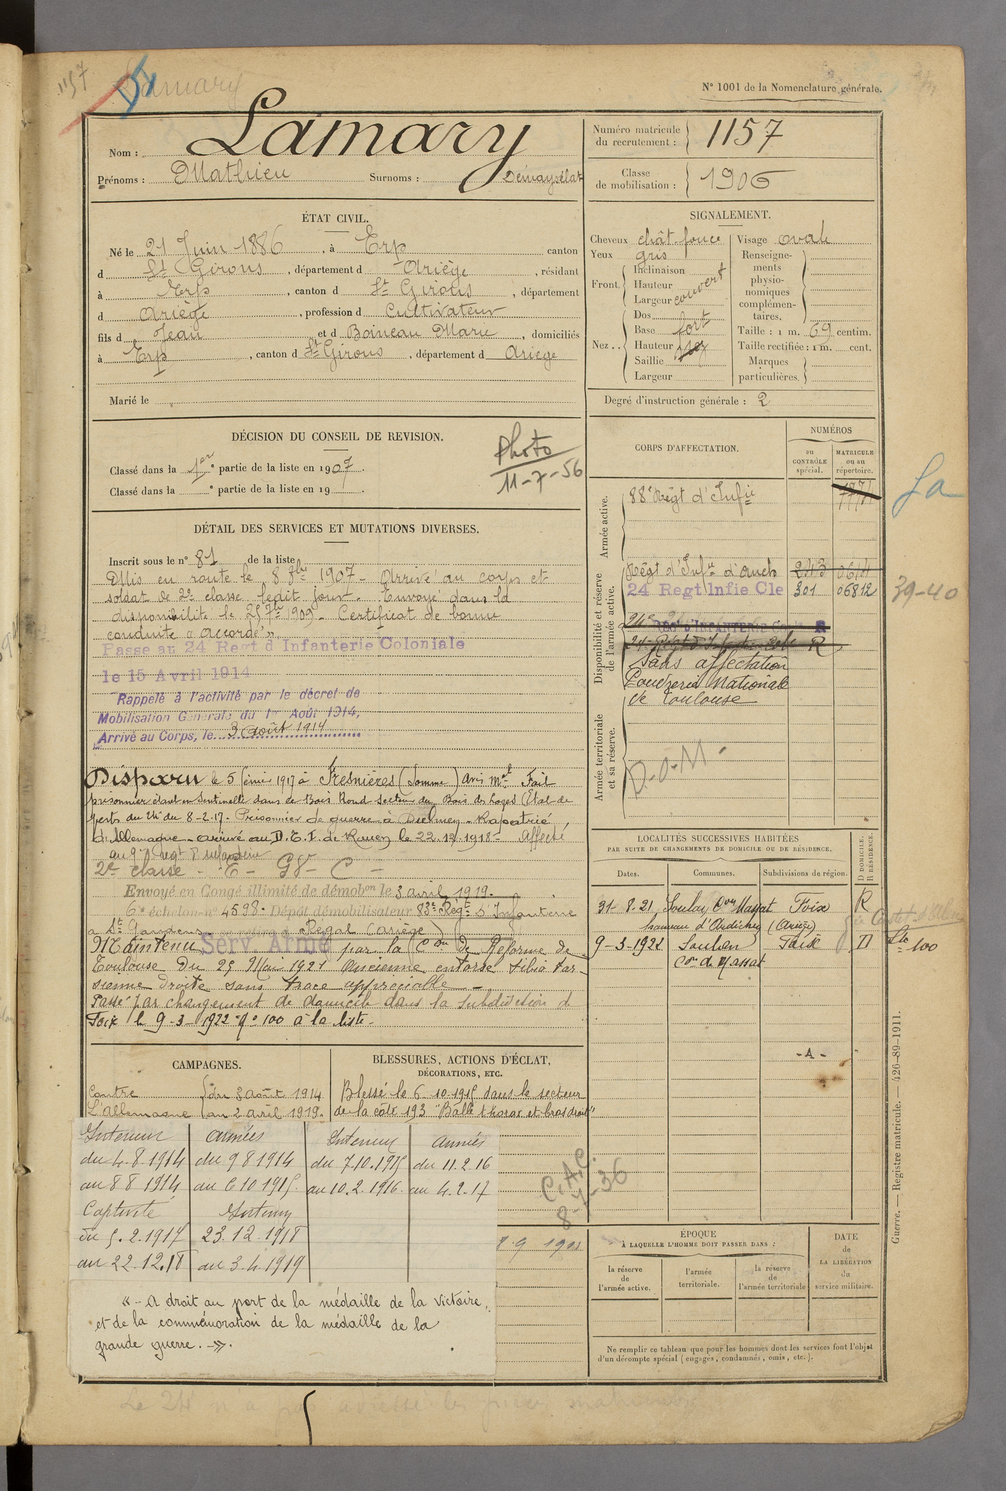 1157
Lamary
N° 1001 de la Nomenclature générale.
Nom : Lamary
Prénoms : Mathieu Surnoms :
Numéro matricule du recrutement : 1157
Classe de mobilisation : 1906
ÉTAT CIVIL.
Né le 21 Juin 1886, à Erp canton
d St Girons, département d Ariège, résidant
à Erp, canton d St Girons, département
d Ariège, profession d Cultivateur
fils d Jean et d Boineau Marie, domiciliés
à Erp, canton d St Girons, département d Ariège
Marié le
SIGNALEMENT.
Cheveux chât. foncé
Yeux gris
Front. Inclinaison
Hauteur
Largeur couvert
Nez.. Dos
Base fort
Hauteur
Saillie
Largeur
Visage ovale
Renseignements physionomiques complémentaires.
Taille : 1 m. 69 centim.
Taille rectifiée : 1 m. cent.
Marques particulières.
Degré d'instruction générale : 2
DÉCISION DU CONSEIL DE REVISION.
Classé dans la 1ère partie de la liste en 1907.
Classé dans la ° partie de la liste en 19 .
Photo
11-7-56
DÉTAIL DES SERVICES ET MUTATIONS DIVERSES.
Inscrit sous le n° 81 de la liste
Mis en route le 8 8bre 1907 - Arrivé au corps et
soldat de 2e classe ledit jour. Envoyé dans la
disponibilité le 25 7bre 1909. Certificat de bonne
conduite « accordé »
Passé au 24 Regt d'Infanterie Coloniale
le 15 Avril 1914
Rappelé à l'activité par le décret de
Mobilisation Générale du 1er Août 1914,
Arrivé au Corps, le 3 août 1914
Disparu le 5 février 1917 à Fresnières (Somme) avis Mel Fait
prisonnier étant en sentinelle dans le Bois Rond secteur du Bois des Loges (Etat de
pertes du Mi du 8-2-17. Prisonnier de guerre à Dulmen - Rapatrié
d'Allemagne - arrivé au D.E.F. de Rouen le 22.12.1918 - Affecté
au 9e Regt d'Infanterie
2e classe - E - GV - C -
Envoyé en Congé illimité de démobon le 3 avril 1919.
6e échelon n° 4598. Dépôt démobilisateur 83e Regt d'Infanterie
à St Gaudens (Ariège)
Maintenu Serv. Armé par la Con de Réforme de
Toulouse du 25 Mai 1921 Ancienne entorse tibio tar-
sienne droite sans trace appréciable -
Passé par changement de domicile dans la subdivision d
Foix le 9-3-1922 n° 100 à la liste -
CORPS D'AFFECTATION.
NUMÉROS
au CONTRÔLE spécial.
MATRICULE ou au répertoire.
Armée active.
88e Régt d'Infie
Disponibilité et réserve de l'armée active.
Régt d'Infie d'Auch 243
24 Regt Infie Cle 301 06812
Sans affectation
Poudrerie Nationale
de Toulouse
Armée territoriale et sa réserve.
D.O.M.
39-40
LOCALITÉS SUCCESSIVES HABITÉES
PAR SUITE DE CHANGEMENTS DE DOMICILE OU DE RÉSIDENCE.
Dates. Communes. Subdivisions de région. D DOMICILE. R RÉSIDENCE.
31-8-21 Soulan Con Massat Foix R
hameau d' (Ariège)
9-3-1922 Soulan Foix D
Con de Massat
Lte n° 100
-A-
CAMPAGNES.
Contre l'Allemagne
du 3 août 1914
au 2 avril 1919.
BLESSURES, ACTIONS D'ÉCLAT, DÉCORATIONS, ETC.
Blessé le 6-10-1915 dans le secteur
de la côte 193 "Balle thorax et bras droit"
Intérieur Armées Intérieur Armées
du 4.8.1914 du 9 8 1914 du 7.10.1915 du 11.2.16
au 8 8 1914 au 6 10 1915 au 10.2.1916 au 4.2.17
Captivité Intérieur
du 5.2.1917 23.12.1918
au 22.12.18 au 3.4.1919
« A droit au port de la médaille de la victoire,
et de la commémoration de la médaille de la
grande guerre. »
C.A.C.
8-7-36
ÉPOQUE
À LAQUELLE L'HOMME DOIT PASSER DANS :
la réserve de l'armée active.
l'armée territoriale.
la réserve de l'armée territoriale
DATE de LA LIBÉRATION du service militaire.
Ne remplir ce tableau que pour les hommes dont les services font l'objet
d'un décompte spécial (engagés, condamnés, omis, etc.).
Guerre. — Registre matricule. — 426-89-1911.